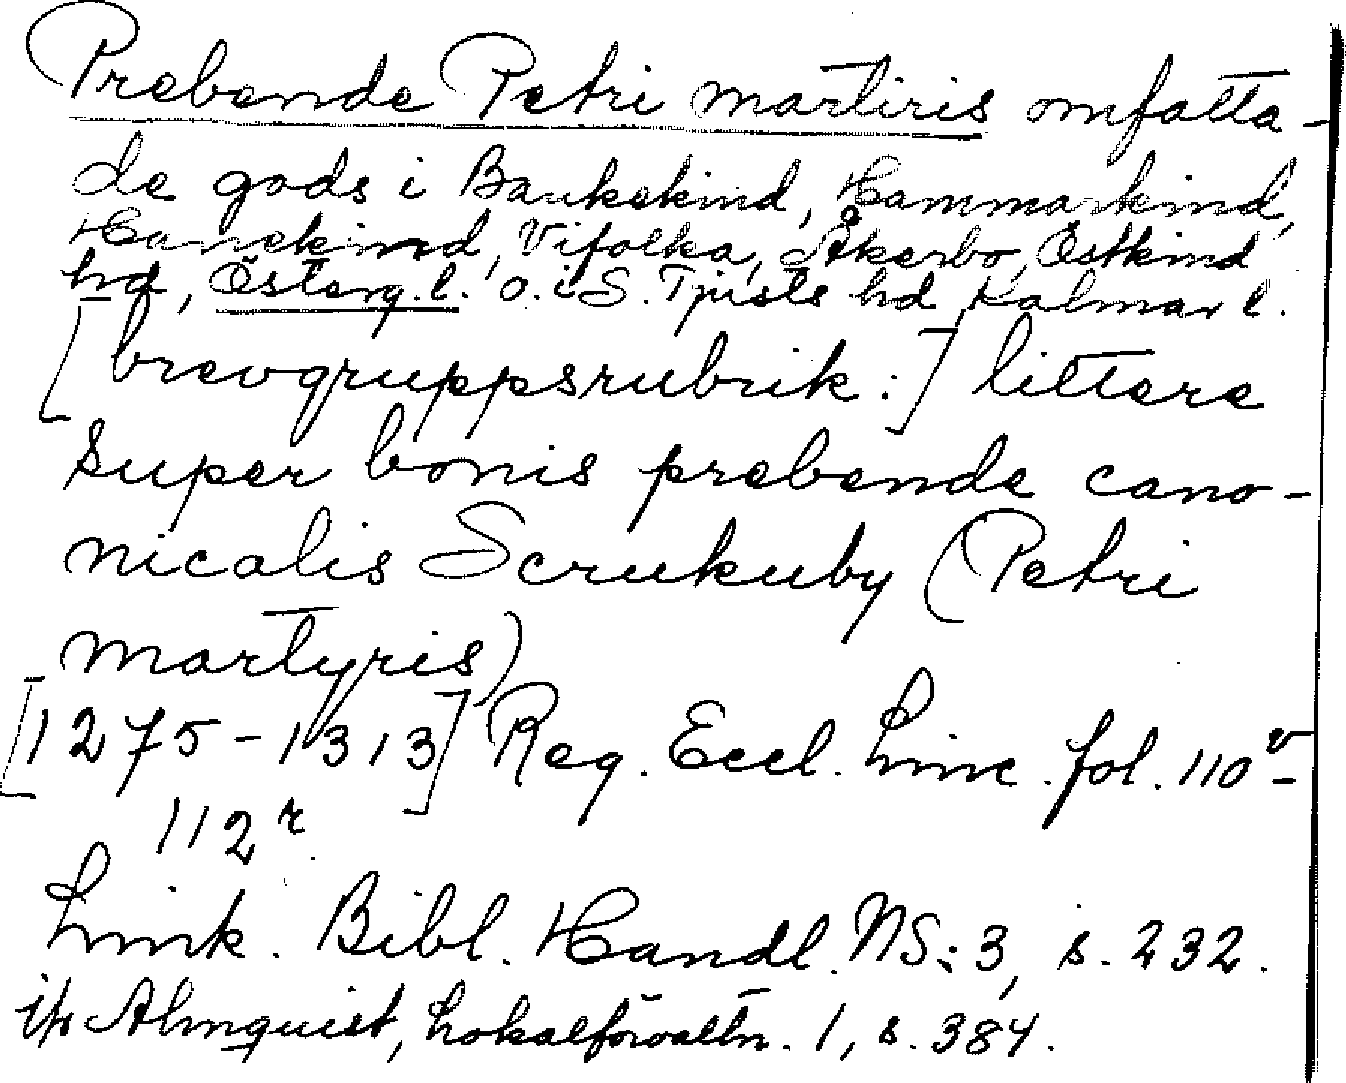 Prebende Petri martiris omfatta-
de gods i Bankekind, Hammarkind,
Hanekind, Vifolka, Åkerbo, Östkind
hd, Österg. l. o. i S. Tjusts hd, Kalmar l.
[brevgruppsrubrik:] littere
super bonis prebende cano-
nicalis Scrukuby (Petri
martyris)
[1275-1313] Reg. Eccl. Linc. fol. 110v-
112r.
Link. Bibl. Handl. NS: 3, s. 232.
Almquist, Lokalförvaltn. 1, s. 384.